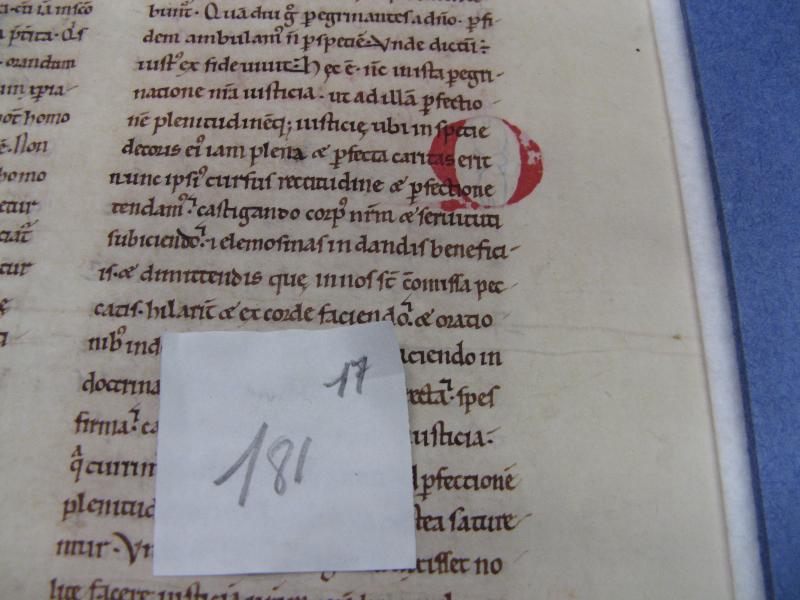 bunt. Quādiu g̊ pegrinantes a dño. p̱fi-
dem ambulam᷒ ñ p̱ speciē. Vnde dictū:
iust᷒ ex fide uiuit. hęc ē. nc̄ in ista pegri-
natione nr̄a iusticia. ut ad illā p̱fectio
nē plenitudinēq; iusticię ubi in specie
decoris ei᷒ iam plena & p̱fecta caritas erit
nunc ipsi᷒ cursus rectitudine & p̱fectione
tendam᷒. castigando corp᷒ nr̄m & seruituti
subiciendo. i elemosinas in dandis benefici-
is. & dimittendis quę in nos st̄ cōmissa pec
catis. hilarit̄ & ex corde faciendo. & oratio
nib᷒ ind
aciendo in
doctrina
recta. spes
firma. ca
iusticia.
q̄ currim
p̱fectionē
plenitud
tea sature
mur. Vn
tisset no
lite facere iusticiā
orandum
homo
ē. Non
homo
etur
tur
O
17
181